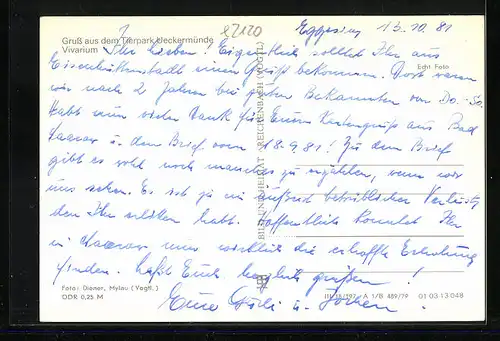 Gruß aus dem Tierpark Ueckermünde
Vivarium
Eggesin, 13.10.81
Ihr Lieben! Eigentlich solltet Ihr aus
Echt Foto
Eisenhüttenstadt einen Gruß bekommen. Dort waren
wir nach 2 Jahren bei Bekannten von Do.-So.
Habt nun vielen Dank für Euren Kartengruß aus Bad
u. den Brief vom 18.9.81! Zu dem Brief
gibt es wohl noch manches zu erzählen, wenn wir
uns sehen. Es ist ja ein äußerst betrüblicher Verlust,
den Ihr erlitten habt. Hoffentlich konntet Ihr
in nun wirklich die erhoffte Erholung
finden. Laßt Euch herzlich grüßen!
Eure u. Jochen
BILD UND HEIMAT REICHENBACH (VOGTL)
Foto: Diener, Mylau (Vogtl.)
DDR 0,25 M
III/18/197 A 1/B 489/79 01 03 13 048